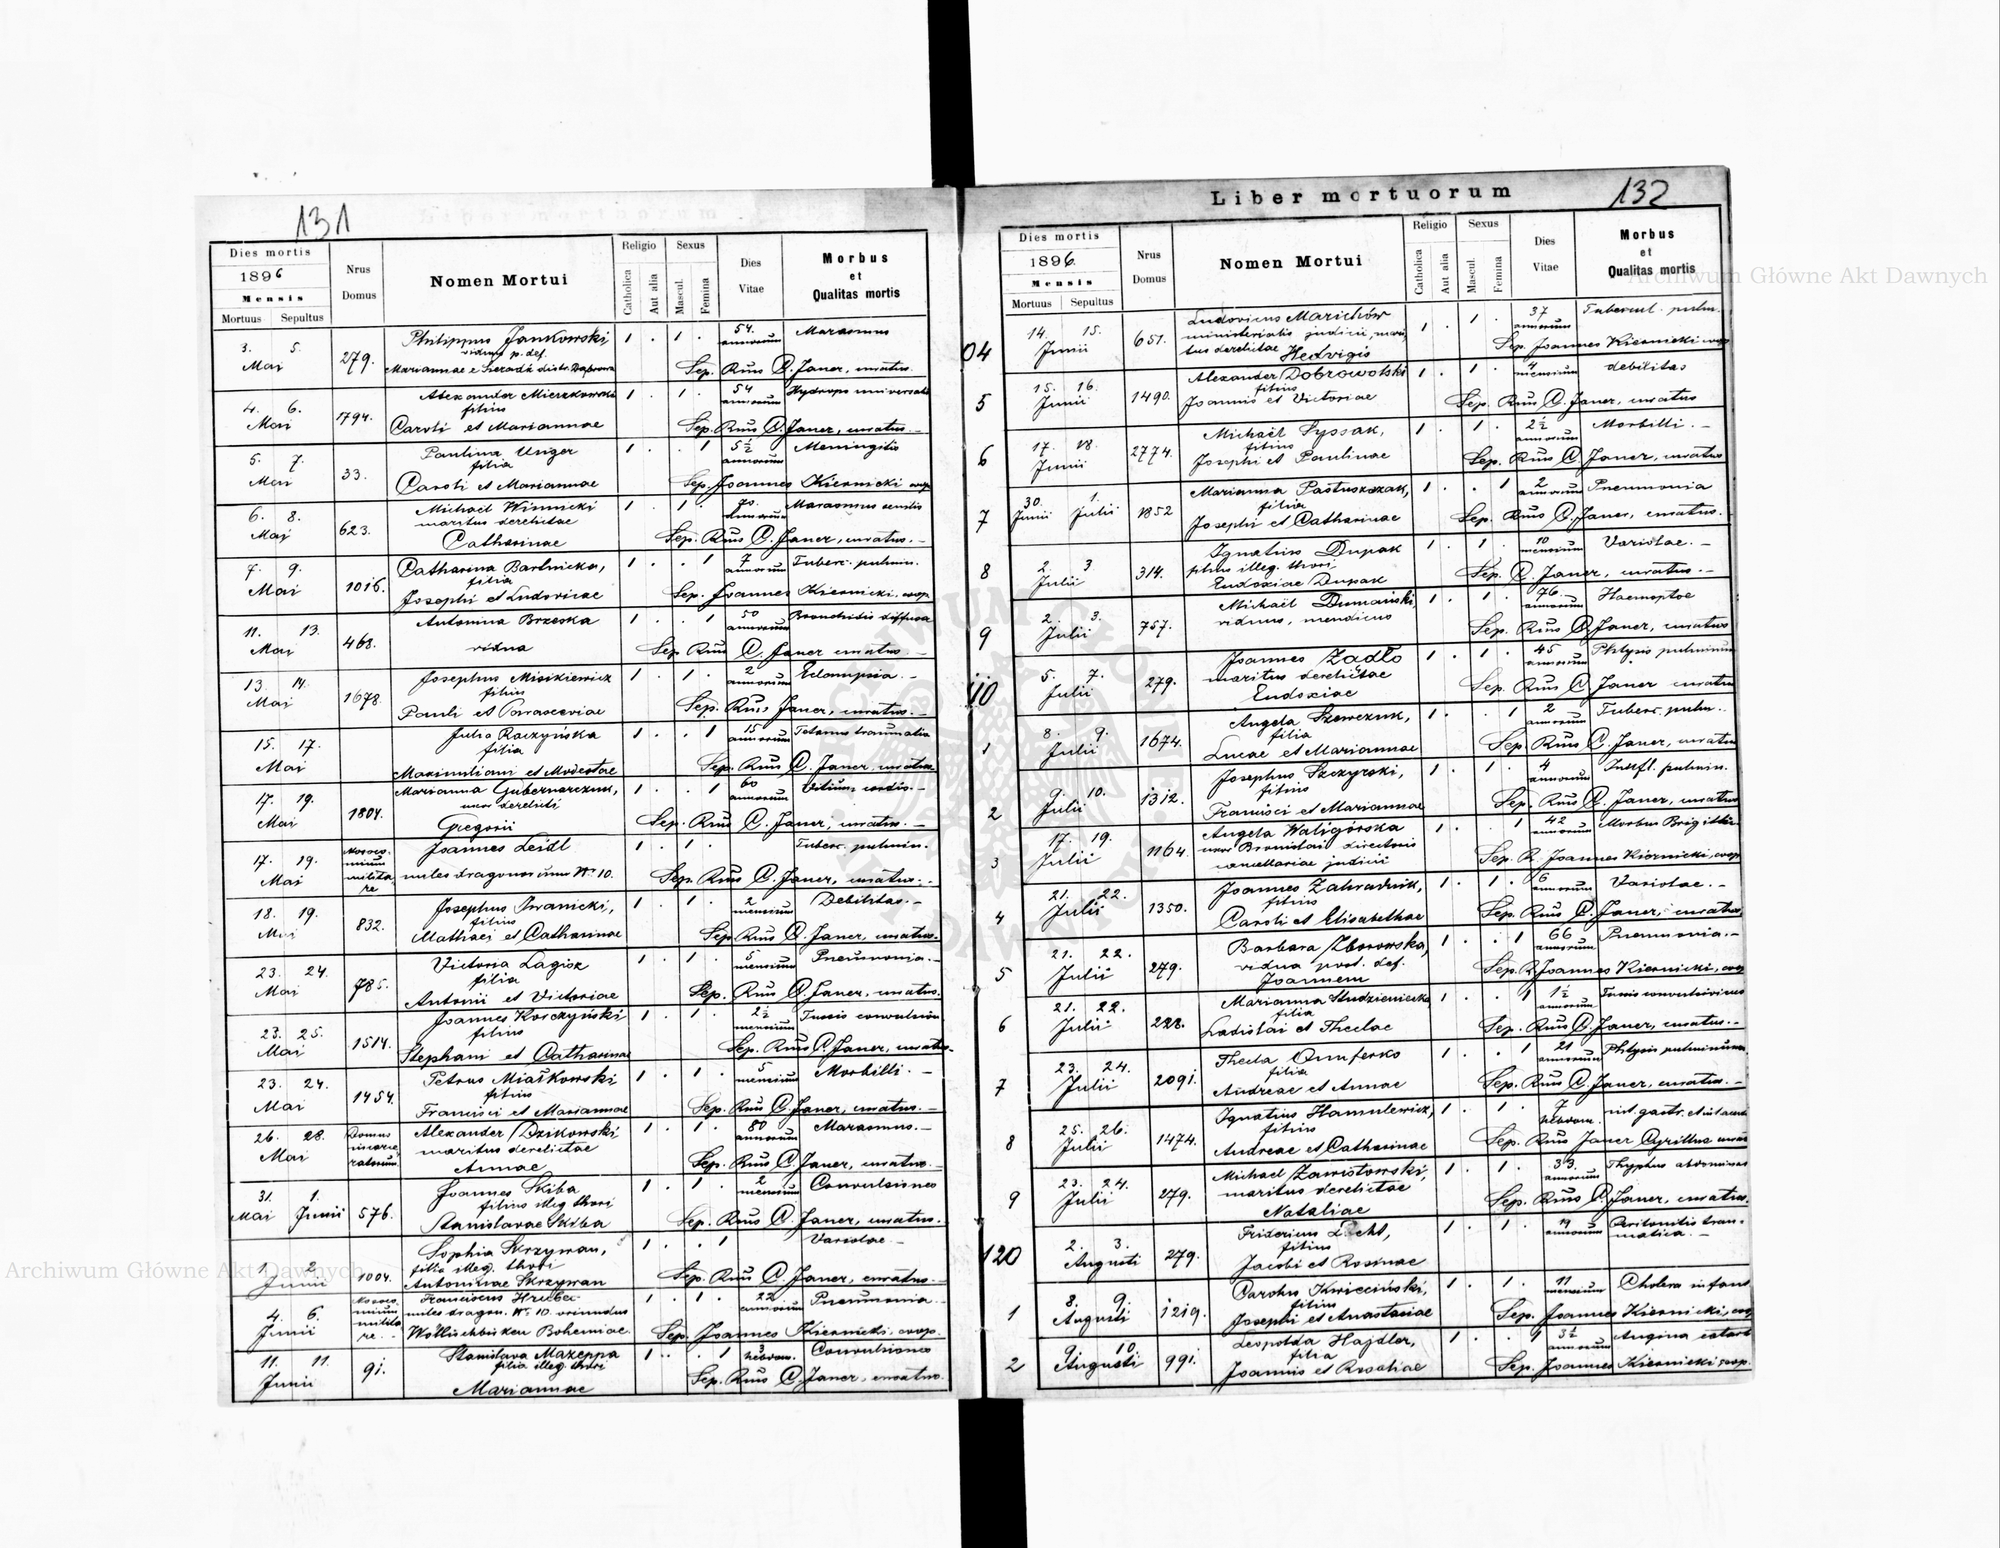 131
Dies mortis
1896
Mensis
Mortuus Sepultus
Nrus Domus
Nomen Mortui
Religio
Catholica
Aut alia
Sexus
Mascul.
Femina
Dies Vitae
Morbus
et
Qualitas mortis
Philippus Jankowski 1 . 1 . 54. annorum Marasmus
3. 5. Mai 279. viduus p. def.
Mariannae e Sieradz distr. Dąbrowa Sep. Rnus C. Janer, curatus.
Alexander Mierzkowski 1 . 1 . 54 annorum Hydrops universalis
4. 6. Mai 1794. filius
Caroli et Mariannae Sep. Rnus C. Janer, curatus.
Paulina Unger 1 . . 1 5½ annorum Meningitis
5. 7. Mai 33. filia
Caroli et Mariannae Sep. Joannes Kiernicki coop.
Michaël Winnicki 1 . 1 . 70. annorum Marasmus senilis
6. 8. Maj 623. maritus derelictae
Catharinae Sep. Rnus C. Janer, curatus.
Catharina Bartnicka, 1 . . 1 7 annorum Tuberc. pulmin.
7. 9. Mai 1016. filia
Josephi et Ludovicae Sep. Joannes Kiernicki, coop.
Antonina Brzeska 1 . . 1 50 annorum Bronchitis diffusa
11. 13. Mai 468. vidua Sep. Rnus C. Janer curatus.
Josephus Misikiewicz 1 . 1 . 2 annorum Eclampsia.
13. 14. Mai 1678. filius
Pauli et Parasceviae Sep. Rnus Janer, curatus.
Julia Raczyńska 1 . . 1 15 annorum Tetanus traumatic
15. 17. Mai filia
Maximiliani et Modestae Sep. Rnus C. Janer, curatus.
Marianna Gubernarczuk, 1 . . 1 60 annorum Vitium cordis.
17. 19. Mai 1804. uxor derelicti
Gregorii Sep. Rnus C. Janer, curatus.
Joannes Leidl 1 . 1 . Tuberc. pulmin.
17. 19. Mai Nosocomium militare miles dragonorum Nº 10. Sep. Rnus C. Janer, curatus.
Josephus Iwanicki, 1 . 1 . 2 mensium Debilitas.
18. 19. Mai 832. filius
Mathaei et Catharinae Sep. Rnus C. Janer, curatus.
Victoria Lagisz 1 . 1 . 5 mensium Pneumonia.
23. 24. Mai 785. filia
Antonii et Victoriae Sep. Rnus C. Janer, curatus.
Joannes Korczyński 1 . 1 . 2½ mensium Tussis convulsiv
23. 25. Mai 1514. filius
Stephani et Catharinae Sep. Rnus C. Janer, curatus.
Petrus Miaśkowski 1 . 1 . 5 mensium Morbilli.
23. 24. Mai 1454. filius
Francisci et Mariannae Sep. Rnus C. Janer, curatus.
Alexander Dzikowski 1 . 1 . 80 annorum Marasmus.
26. 28. Mai Domus miseratorum maritus derelictae
Annae Sep. Rnus C. Janer, curatus.
Joannes Skiba 1 . 1 . 2 mensium Convulsiones
31. Mai 1. Junii 576. filius illeg. thori
Stanislavae Skiba Sep. Rnus C. Janer, curatus.
Sophia Skrzywan, 1 . . 1 Variolae.
1. 2. Junii 1004. filia illeg. thori
Antoninae Skrzywan Sep. Rnus C. Janer, curatus.
Franciscus Hrubec 1 . 1 . 22 annorum Pneumonia
4. 6. Junii Nosocomium militare miles dragon. Nº 10. oriundus
Bohemiae. Sep. Joannes Kiernicki, coop.
Stanislava Mazeppa 1 . . 1 3 hebdom. Convulsiones
11. 11. Junii 91. filia illeg. thori
Mariannae Sep. Rnus C. Janer, curatus.
Liber mortuorum
132
Dies mortis
1896.
Mensis
Mortuus Sepultus
Nrus Domus
Nomen Mortui
Religio
Catholica
Aut alia
Sexus
Mascul.
Femina
Dies Vitae
Morbus
et
Qualitas mortis
Ludovicus Marichów 1 . 1 . 37 annorum Tubercul. pulm.
04 14. 15. Junii 651. ministerialis judicii, mari-
tus derelictae Hedvigis Sep. Joannes Kiernicki coop
Alexander Dobrowolski 1 . 1 . 4 mensium debilitas
5 15. 16. Junii 1490. filius
Joannis et Victoriae Sep. Rnus C. Janer, curatus
Michaël Syssak, 1 . 1 . 2½ annorum Morbilli.
6 17. 18. Junii 2774. filius
Josephi et Paulinae Sep. Rnus C. Janer, curatus
Marianna Pastuszczak, 1 . . 1 2 annorum Pneumonia
7 30. Junii 1. Julii 1852 filia
Josephi et Catharinae Sep. Rnus C. Janer, curatus.
Ignatius Dupak 1 . 1 . 10 mensium Variolae.
8 2. 3 Julii 314. filius illeg. thori
Eudoxiae Dupak Sep. C. Janer, curatus.
Michaël Dumański, 1 . 1 . 76. annorum Haemoptoe
9 2. 3. Julii 757. viduus, mendicus Sep. Rnus C. Janer, curatus
Joannes Zadło 1 . 1 . 45 annorum Phtysis pulminum
110 5. 7. Julii 279. maritus derelictae
Eudoxiae Sep. Rnus C. Janer curatus
Angela Szewczuk, 1 . . 1 2 annorum Tuberc. pulm.
1 8. 9. Julii 1674. filia
Lucae et Mariannae Sep. Rnus C. Janer, curatus
Josephus Szczyrski, 1 . 1 . 4 annorum Infl. pulmin.
2 9. 10. Julii 1312. filius
Francisci et Mariannae Sep. Rnus C. Janer, curatus
Angela Waligórska 1 . . 1 42 annorum Morbus Brigithii
3 17. 19. Julii 1164. uxor Bronislai directoris
cancellariae judicii Sep. R. Joannes Kiernicki, coop
Joannes Zahradnik, 1 . 1 . 6 annorum Variolae.
4 21. 22. Julii 1350. filius
Caroli et Elisabethae Sep. Rnus C. Janer, curatus.
Barbara Zborowska, 1 . . 1 66 annorum Pneumonia.
5 21. 22. Julii 279. vidua post. def.
Joannem Sep. R. Joannes Kiernicki, coop
Marianna Studzieniecka 1 . . 1 1½ annorum Tussis convulsivus
6 21. 22. Julii 228. filia
Ladislai et Theclae Sep. Rnus C. Janer, curatus.
Thecla Onuferko 1 . . 1 21 annorum Phtysis pulminum
7 23. 24. Julii 2091. filia
Andreae et Annae Sep. Rnus C. Janer, curatus.
Ignatius Hamulewicz, 1 . 1 . 7 hebdom.
8 25. 26. Julii 1474. filius
Andreae et Catharinae Sep. Rnus Janer Cyrillus curat
Michael Zawistowski, 1 . 1 . 33. annorum Thyphus abdominal
9 23. 24. Julii 279. maritus derelictae
Nataliae Sep. Rnus C. Janer, curatus.
Fridericus 1 . 1 . 19 annorum Peritonitis trau-
matica.
120 2. 3. Augusti 279. filius
Jacobi et Rosinae
Carolus Kwieciński, 1 . 1 . 11 mensium Cholera infant
1 8. 9. Augusti 1219. filius
Josephi et Anastasiae Sep. Joannes Kiernicki, coop
Leopolda Hajdler, 1 . . 1 3½ annorum Angina
2 9. 10. Augusti 991. filia
Joannis et Rosaliae Sep. Joannes Kiernicki coop.
Archiwum Główne Akt Dawnych
Archiwum Główne Akt Dawnych
ARCHIWUM GŁÓWNE AKT DAWNYCH